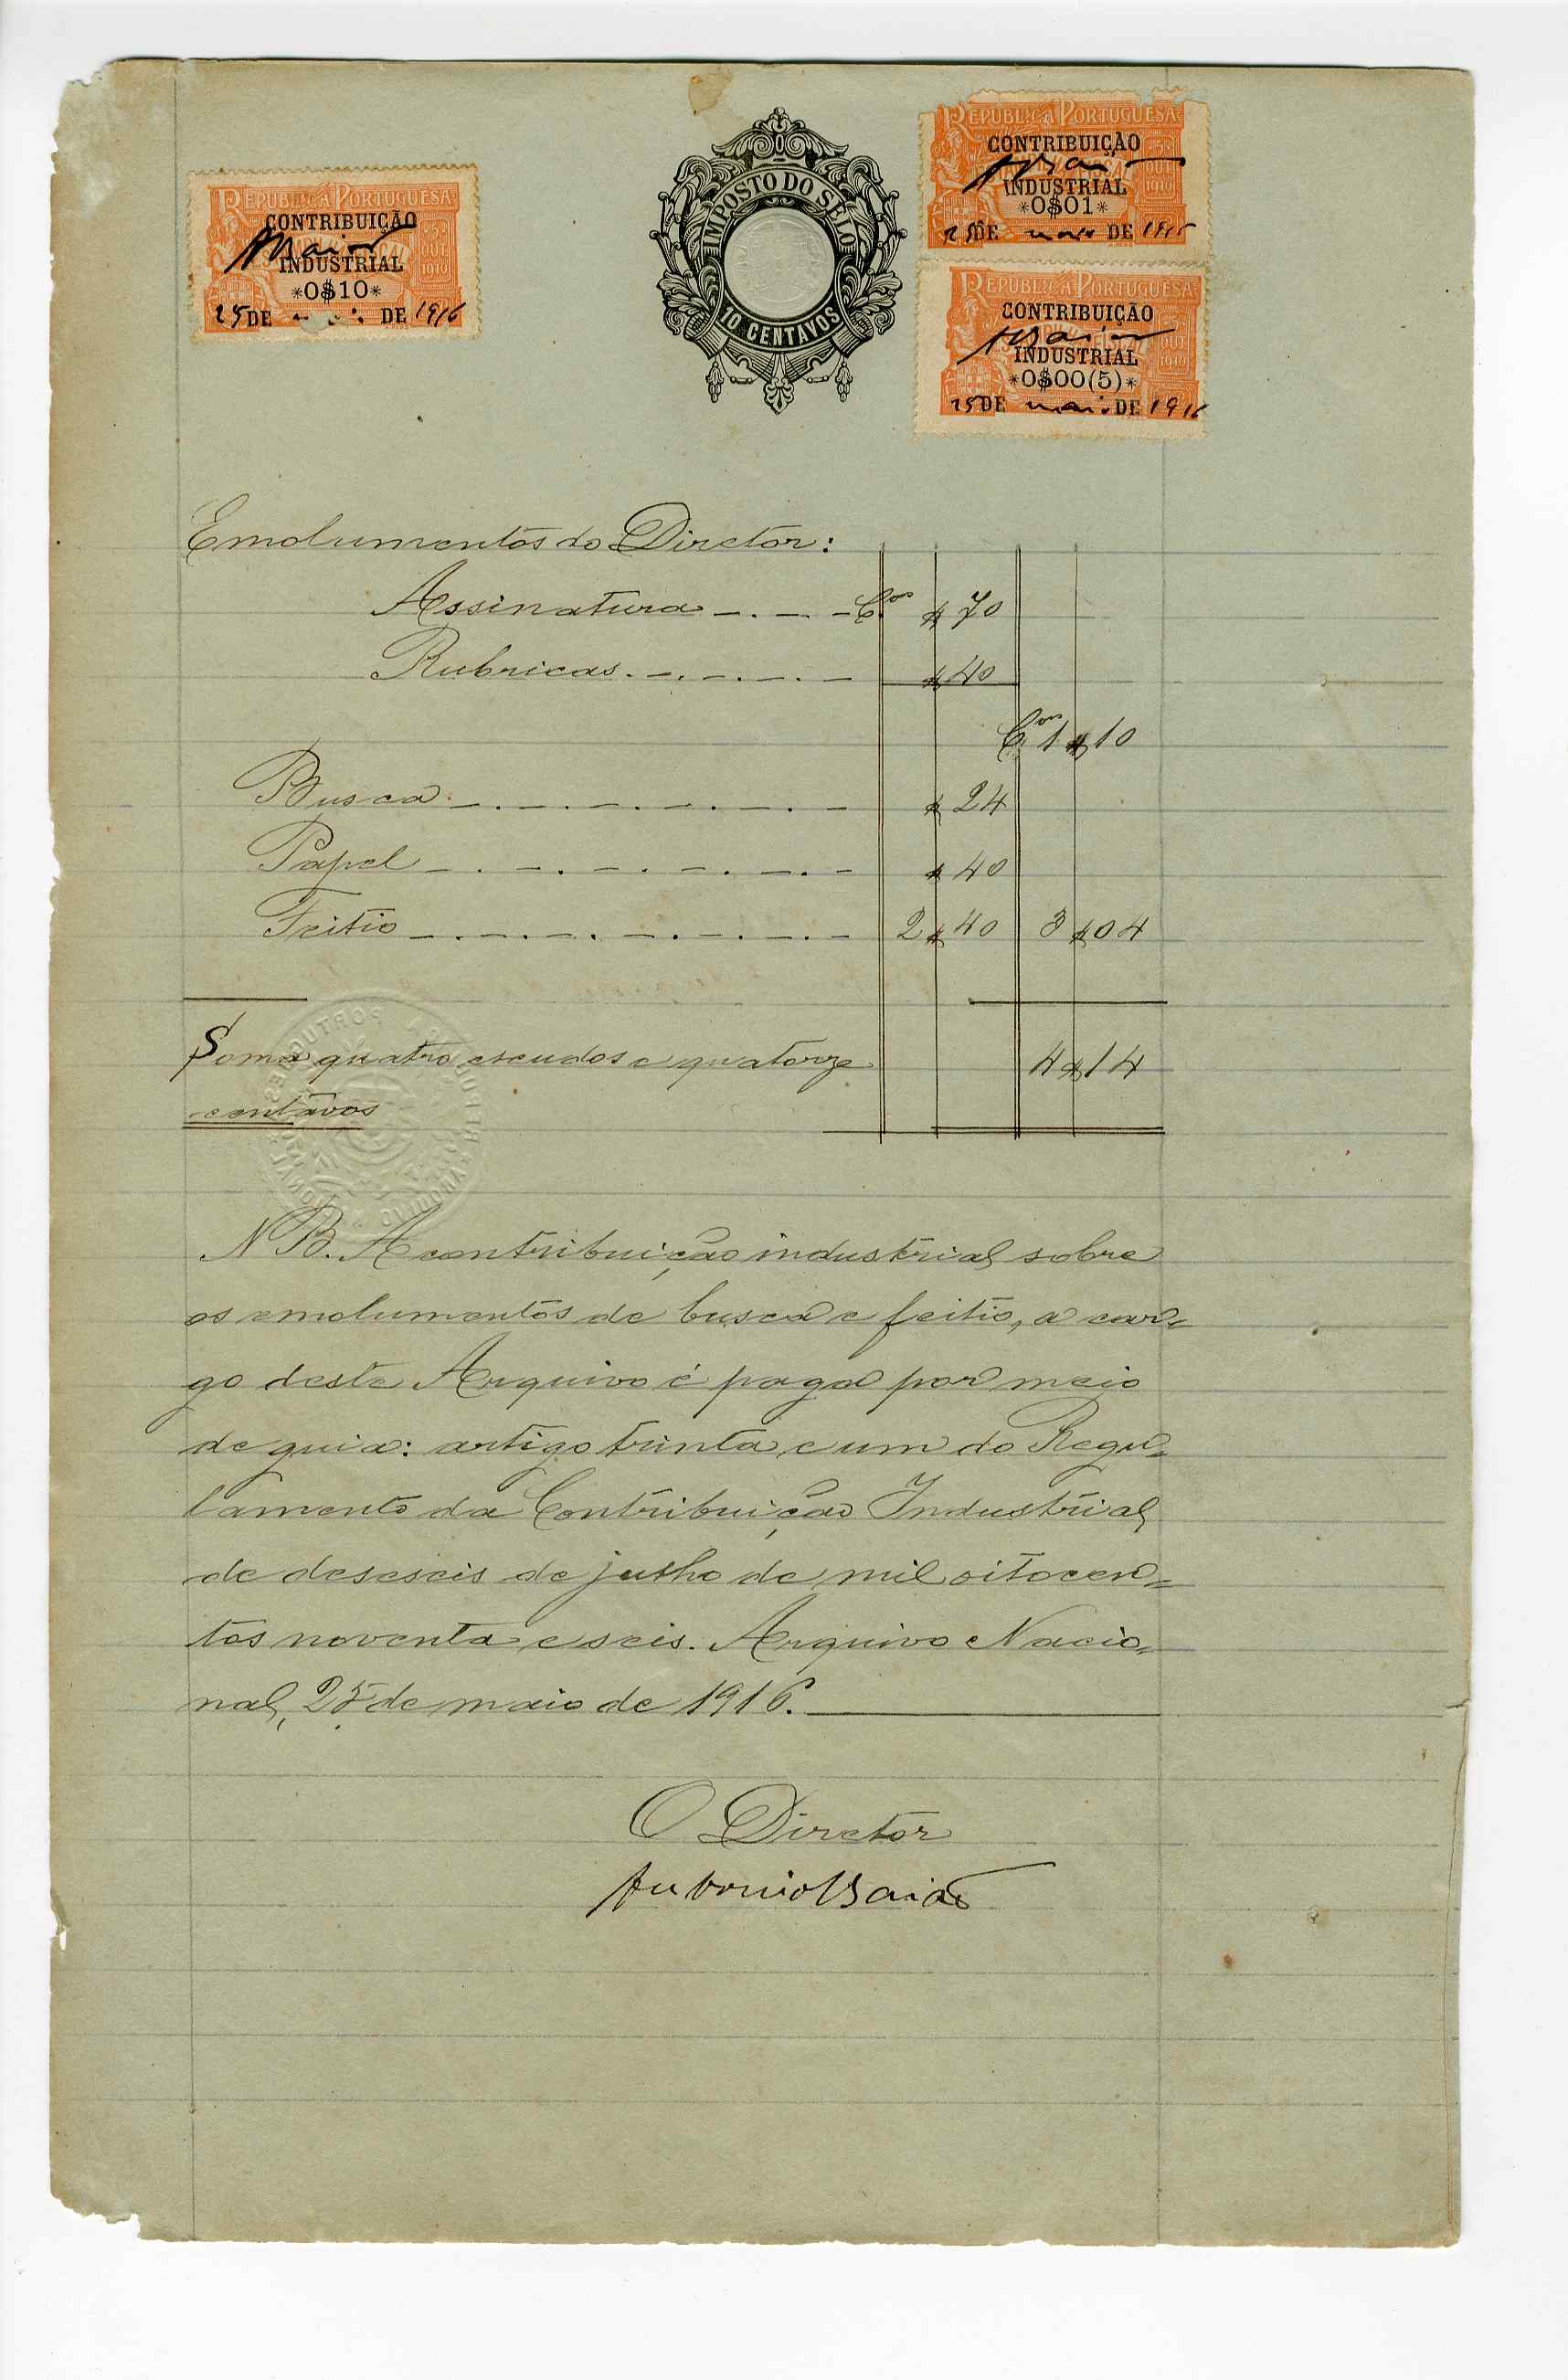 REPUBLICA PORTUGUESA
CONTRIBUIÇÃO
Baião
INDUSTRIAL
*0$10*
25 DE DE 1916
IMPOSTO DO SELO
10 CENTAVOS
REPUBLICA PORTUGUESA
CONTRIBUIÇÃO
ABaião
INDUSTRIAL
*0$01*
25 DE maio DE 1916
REPUBLICA PORTUGUESA
CONTRIBUIÇÃO
ABaião
INDUSTRIAL
*0$00(5)*
25 DE maio DE 1916
Emolumentos do Diretor:
Assinatura _._._ C.os $70
Rubricas._._._._ $40
C.os 1$10
Busca._._._._._._ $24
Papel _._._._._._ $40
Feitio _._._._._._ 2$40 3$04
Soma quatro escudos e quatorze 4$14
centavos
NB. A contribuição industrial sobre
os emolumentos de busca e feitio, a car=
go deste Arquivo é paga por meio
de guia: artigo trinta e um do Regu=
lamento da Contribuição Industrial,
de deseseis de julho de mil oitocen=
tos noventa e seis. Arquivo Nacio=
nal, 25 de maio de 1916.
O Diretor
Antonio Baião